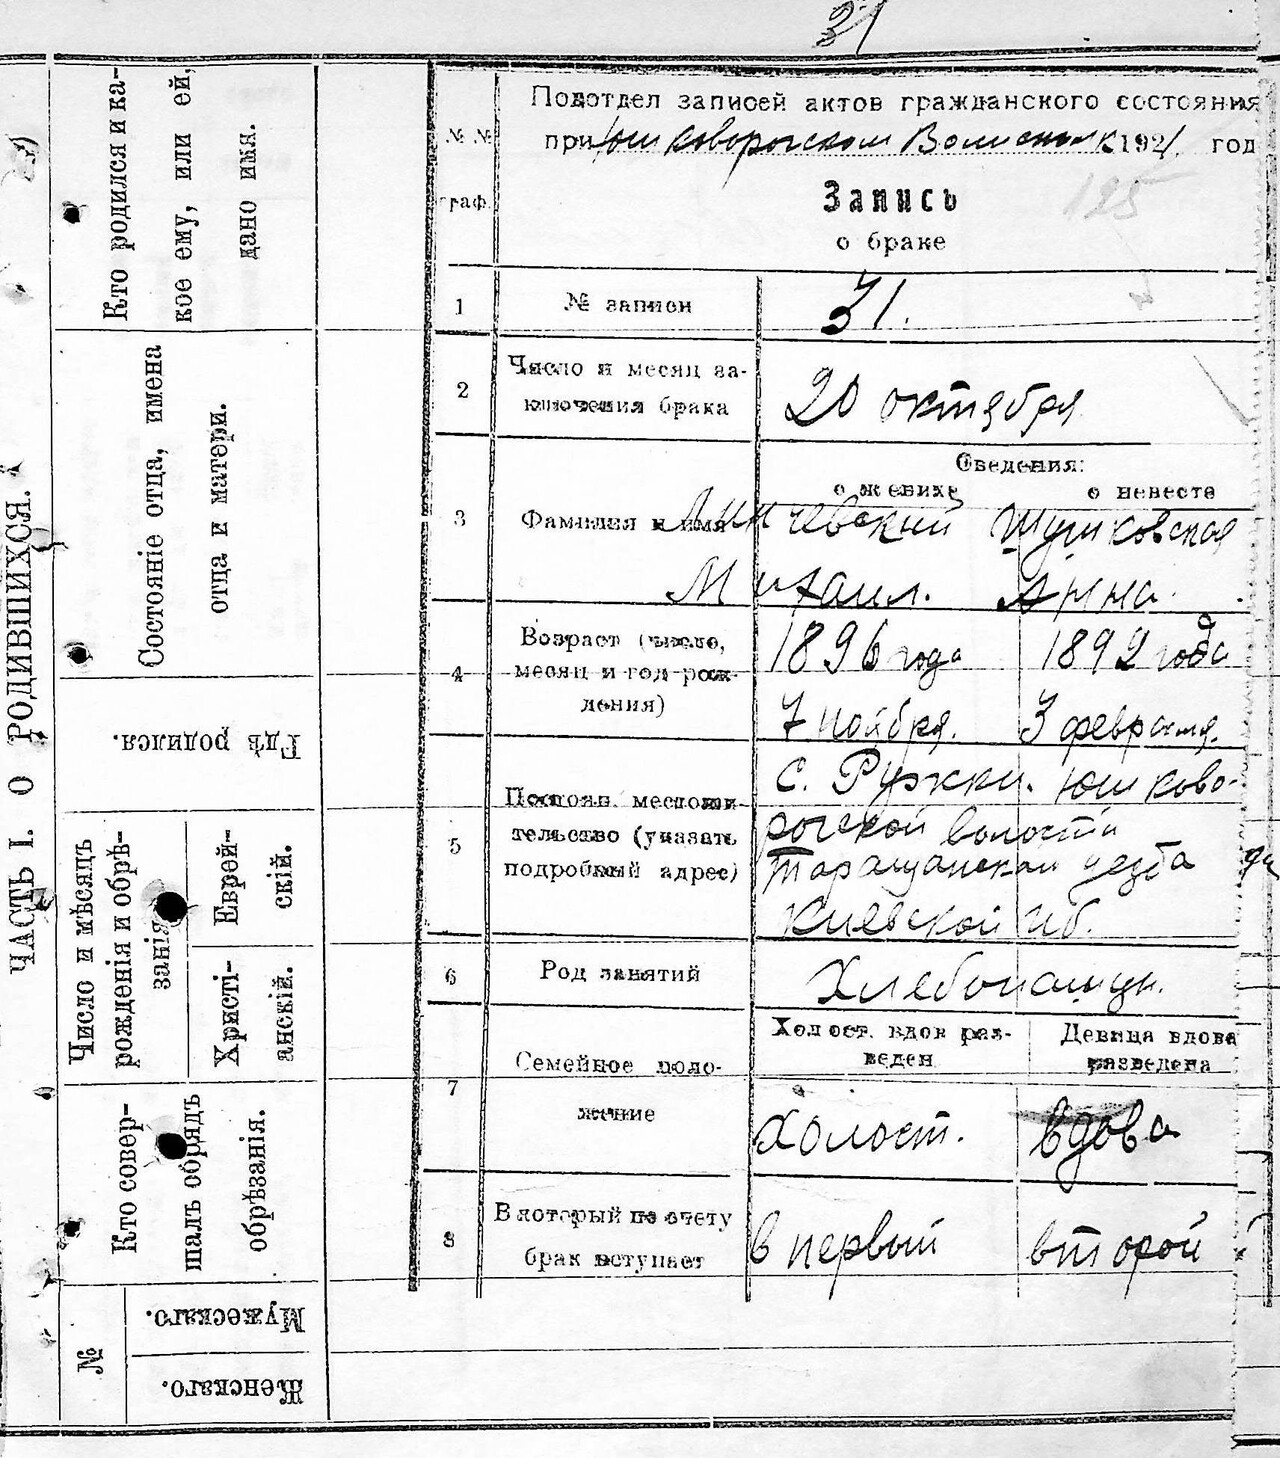 31
ЧАСТЬ I. О РОДИВШИХСЯ.
Кто родился и ка-
кое ему, или ей,
дано имя.
Состояніе отца, имена
отца и матери.
Гдѣ родился.
Число и мѣсяцъ
рожденія и обрѣ-
занія
Еврей-
скій.
Христі-
анскій.
Кто совер-
шалъ обрядъ
обрѣзанія.
№
Мужескаго.
Женскаго.
№ №
граф.
Подотдел записей актов гражданского состояния
при Юшковорогском 1921 год
Запись
125
о браке
1 № записи 31.
2 Число и месяц за-
ключения брака 20 октября
Сведения:
о женихе о невесте
3 Фамилия и имя
Михаил. Анна.
4 Возраст (число,
месяц и год рож-
дения)
1896 года 1892 года
7 ноября. 3 февраля.
5 Постоян. местожи-
тельство (указать
подробный адрес)
с. Ружки. Юшково-
рогской волости
Таращанской уезда
Киевской губ.
6 Род занятий Хлебопашцы.
7 Семейное поло-
жение
Холост. вдов раз-
веден
Девица вдова
разведена
холост. вдова
8 В который по счету
брак вступает
в первый второй